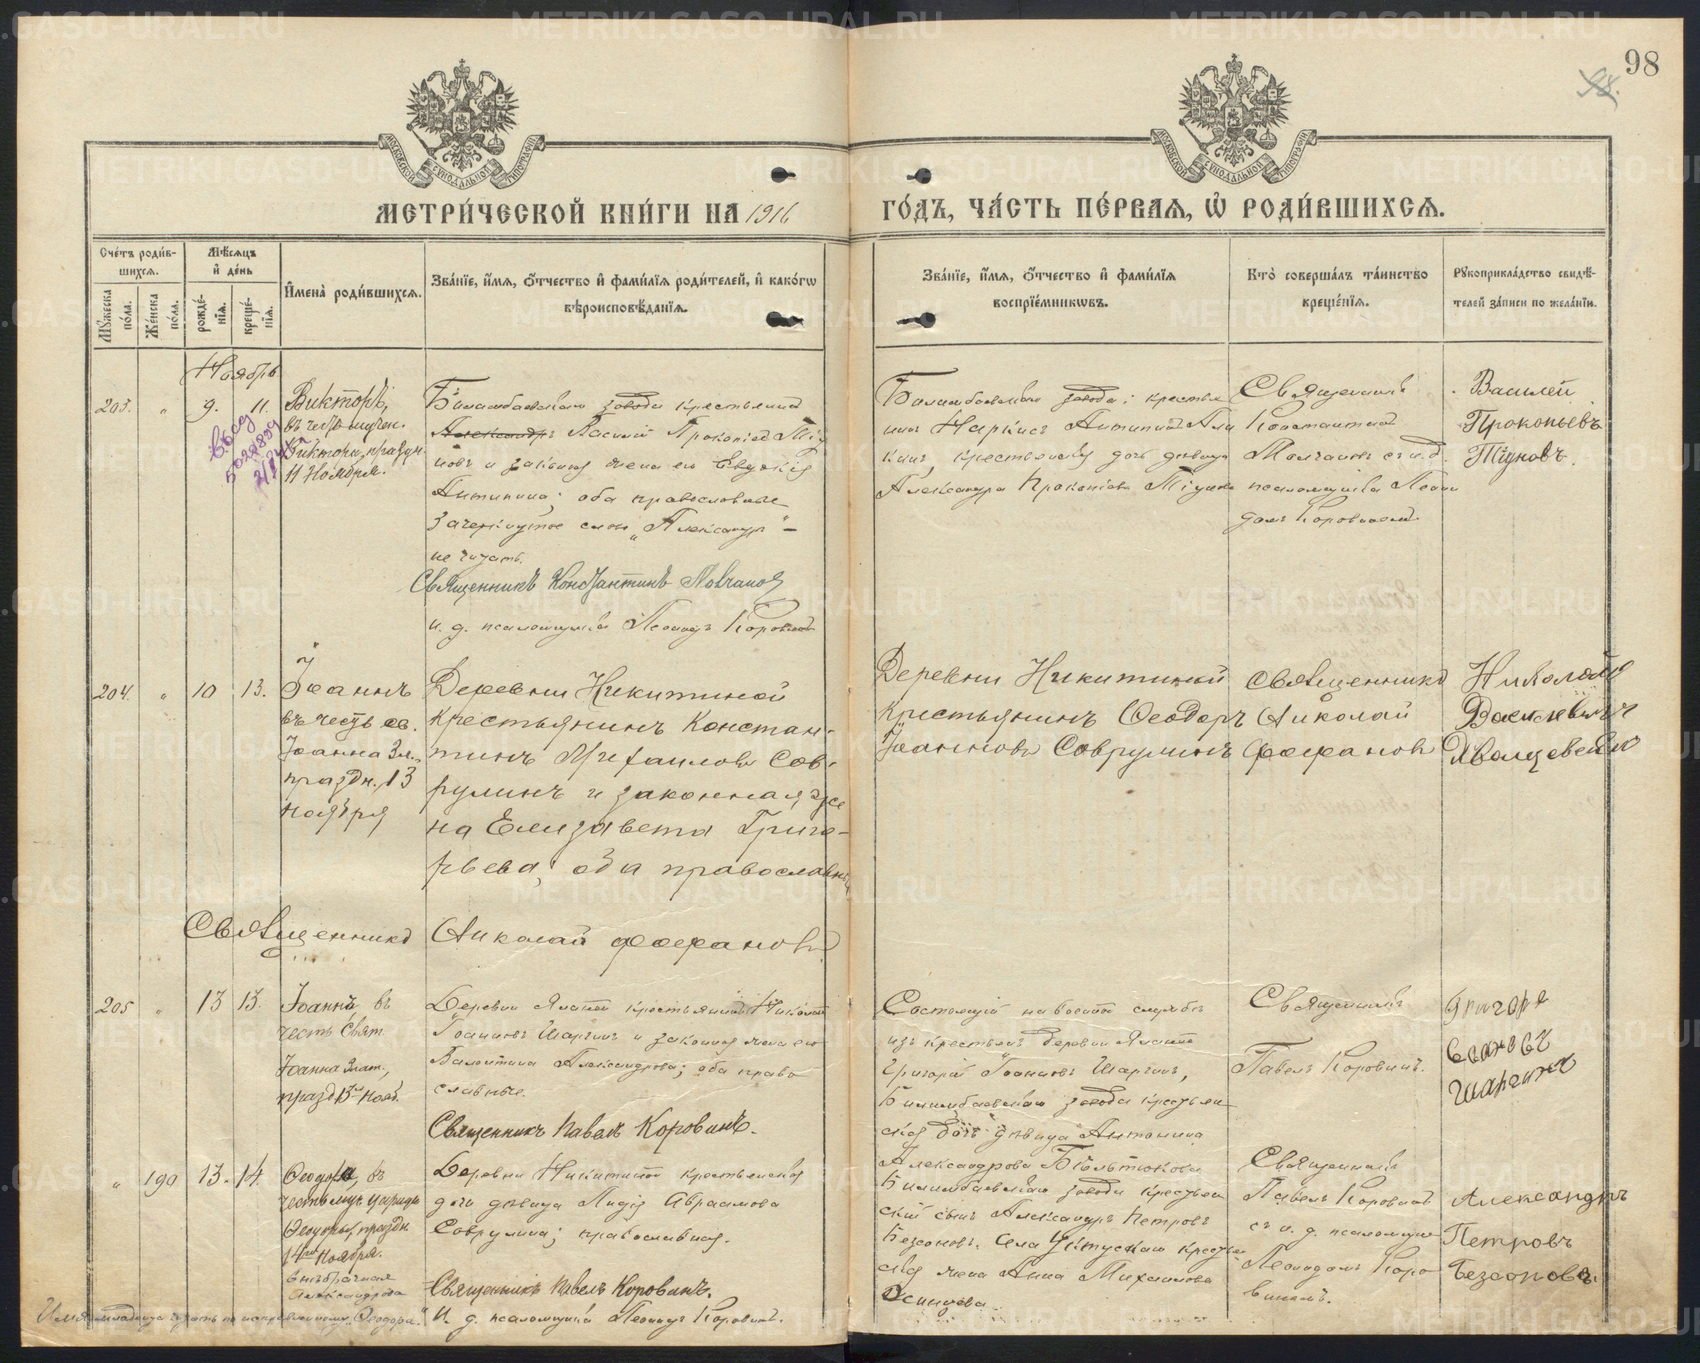 98
МОСКОВСКОЙ СѴНОДАЛЬНОЙ ТИПОГРАФІИ
МОСКОВСКОЙ СѴНОДАЛЬНОЙ ТИПОГРАФІИ
МЕТРИ́ЧЕСКОЙ КНИ́ГИ НА 1916
ГО́ДЪ, ЧА́СТЬ ПЕ́РВАЯ, Ѡ РОДИ́ВШИХСЯ.
Сче́тъ роди́в-
шихся.
Мѣ́сяцъ
и҆ де́нь
Мꙋ́жеска
по́ла.
Же́нска
по́ла.
рожде́-
нїѧ.
креще́-
нїѧ.
И҆мена̀ роди́вшихся.
Зва́нїе, и҆́мѧ, ѻ҆́тчество и҆ фами́лїѧ роди́телей, и҆ како́гѡ
вѣроисповѣ́данїѧ.
Зва́нїе, и҆́мѧ, ѻ҆́тчество и҆ фами́лїѧ
воспрїе́мникѡвъ.
Кто̀ соверша́лъ та́инство
креще́нїѧ.
Рꙋкоприкла́дство свидѣ́-
телей за́писи по жела́нїю.
Ноябрь
203. " 9. 11.
Викторъ,
въ честь мучен.
Виктора, праздн.
11 Ноября.
Билимбаевскаго завода крестьянинъ
Александръ Василій Прокопіевъ Тіу
новъ и законная жена его Евдокія
Антипина; оба православные
Зачеркнутое слово „Александръ" –
не читать.
Священникъ Константинъ Молчановъ
и. д. псаломщика Леонидъ Коровинъ
Билимбаевскаго завода: крестья
нинъ Наркисъ Антипинъ
крестьянская дочь девица
Александра Прокопіева Тіунова
Священникъ
Константинъ
Молчановъ съ и. д.
псаломщика Леони
домъ Коровинымъ.
Василей
Прокопьевъ
Тіуновъ.
204. " 10 13.
Іоаннъ
въ честь св.
Іоанна Зл.,
праздн. 13
ноября
Деревни Никитиной
крестьянинъ Констан-
тинъ Михаиловъ Сов-
рулинъ и законная же
на Елизавета Григо-
рьева, оба православны
Священникъ Николай Феофановъ
Деревни Никитиной
крестьянинъ Ѳеодоръ
Іоанновъ Соврулинъ
Священникъ
Николай
Феофановъ
Николай
Васильевичъ
205 " 13 13.
Іоаннъ въ
честь Свят.
Іоанна Злат.,
празд 13го нояб.
Деревни крестьянинъ Николай
Іоанновъ Шаргинъ и законная жена его
Валентина Александрова; оба право
славные.
Священникъ Павелъ Коровинъ.
Состоящій на военной службѣ
изъ крестьянъ деревни
Григорій Іоанновъ Шаргинъ,
Билимбаевскаго завода крестьян
ская дочь девица Антонина
Александрова
Священникъ
Павелъ Коровинъ.
Григорій
Шаргинъ
" 190 13. 14.
Ѳеодора, въ
честь муч. царицы
Ѳеодоры, праздн.
14го ноября.
внѣбрачная
Александрова
Деревни Никитиной крестьянская
дочь девица Лидія Авраамова
Соврулина; православная.
Священникъ Павелъ Коровинъ.
И. д. псаломщика Леонидъ Коровинъ.
Имя младенца читать по исправленному „Ѳеодора."
Билимбаевскаго завода крестьян
скій сынъ Александръ Петровъ
Безсоновъ. Села Уткускаго крестьян
ская жена Анна Михаилова
Осинцева.
Священникъ
Павелъ Коровинъ
съ и. д. псаломщик
Леонидомъ Коро
винымъ.
Александръ
Петровъ
Безсоновъ.
METRIKI.GASO-URAL.RU